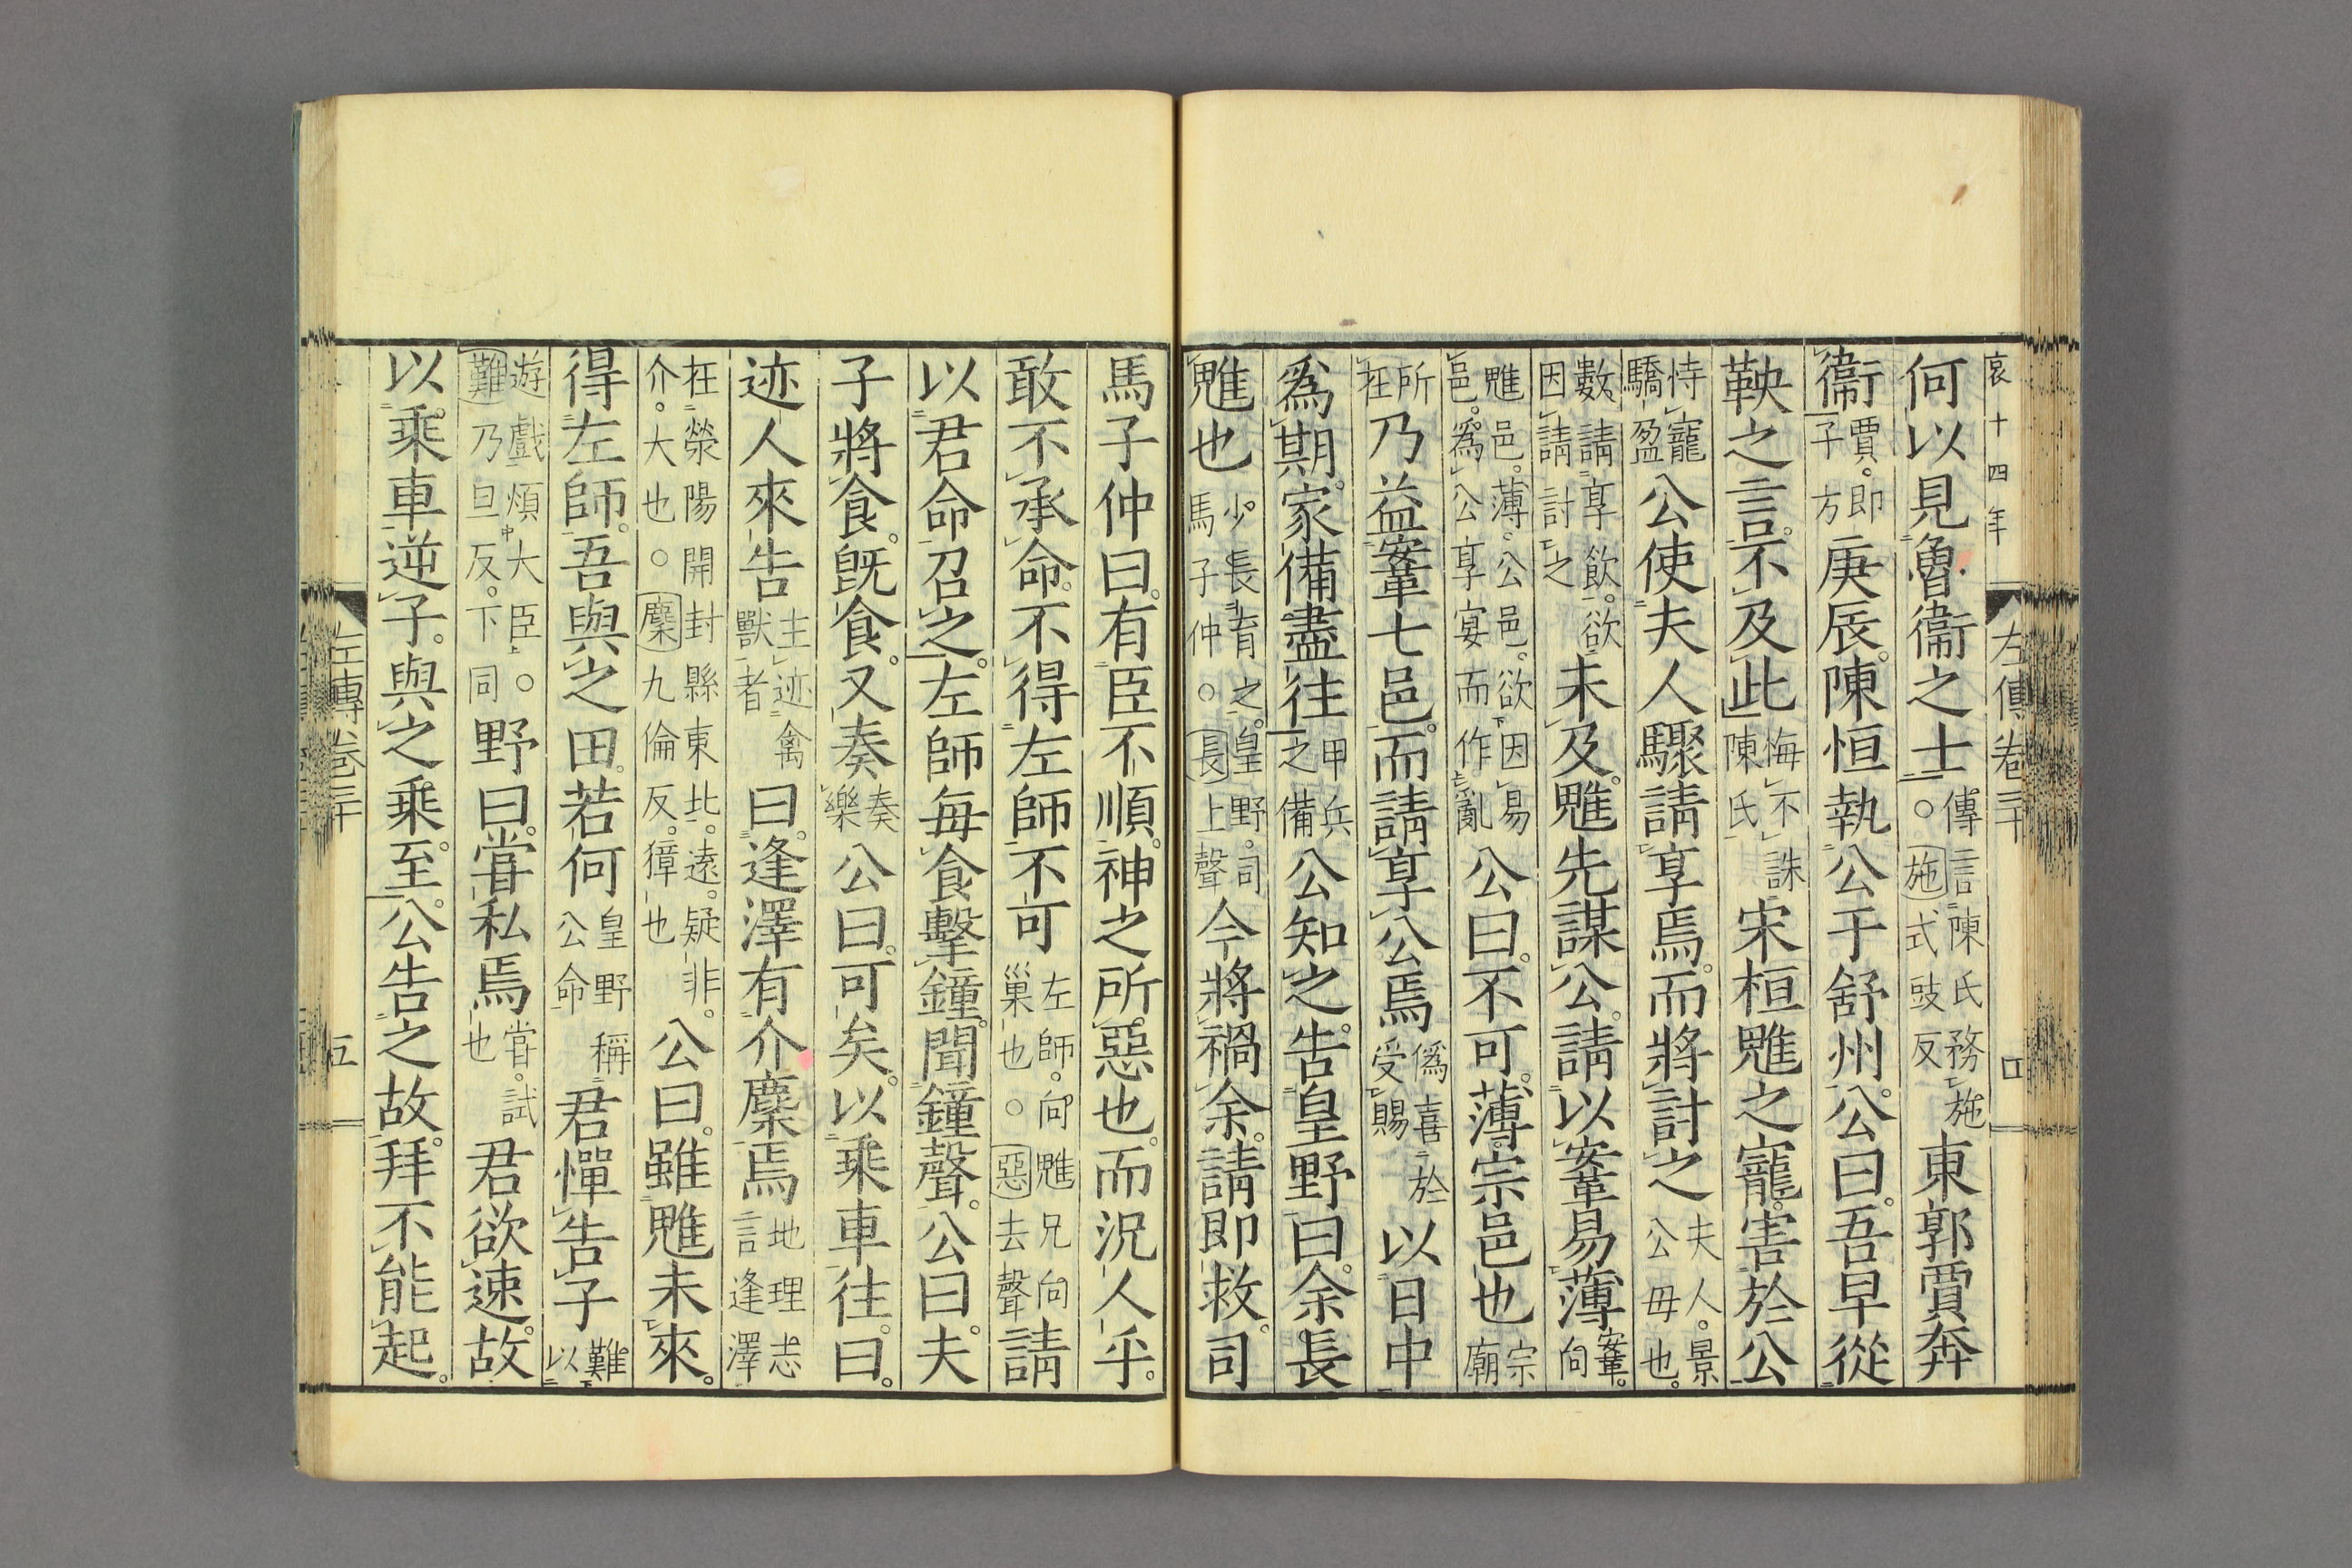 哀十四年
左傳卷三十
四
何以見魯衞之士。傳言陳氏務施○施式豉反東郭賈奔
衞賈。即子方庚辰。陳恒執公于舒州。公曰。吾早從
鞅之言。不及此悔不誅陳氏宋桓魋之寵。害於公
恃寵驕盈公使夫人驟請享焉。而將討之夫人。景公母也。
數請享飲。欲因請討之未及。魋先謀公。請以鞌易薄鞌。向
魋邑。薄。公邑。欲因易邑。爲公享宴而作亂公曰。不可。薄宗邑也宗廟
所在乃益鞌七邑。而請享公焉僞喜於受賜以日中
爲期。家備盡往甲兵之備公知之。告皇野曰。余長
魋也少長育之。皇野。司馬子仲○長上聲今將禍余。請即救。司
馬子仲曰。有臣不順。神之所惡也。而況人乎。
敢不承命。不得左師不可左師。向魋兄向巢也。○惡去聲請
以君命召之。左師每食擊鐘。聞鐘聲。公曰。夫
子將食。既食。又奏奏樂公曰。可矣。以乘車往。曰。
迹人來告主迹禽獸者曰。逢澤有介麋焉地理志言逢澤
在滎陽開封縣東北。遠。疑非。介。大也○麋九倫反。獐也公曰。雖魋未來。
得左師。吾與之田。若何皇野稱公命君憚告子難以
遊戲煩大臣。○難乃旦反。下同野曰。嘗私焉嘗。試也君欲速。故
以乘車逆子。與之乘。至。公告之故。拜不能起。
左傳卷三十
五